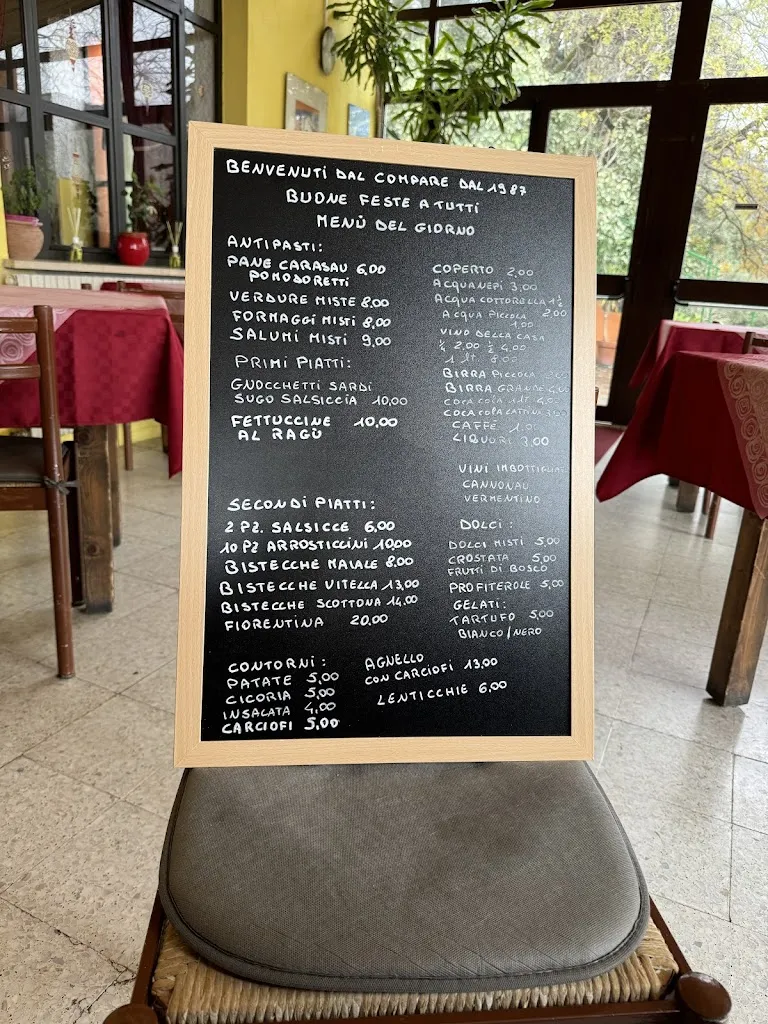 BENVENUTI DAL COMPARE DAL 1987
BUONE FESTE A TUTTI
MENÙ DEL GIORNO
ANTIPASTI:
PANE CARASAU 6,00
POMODORETTI
VERDURE MISTE 8,00
FORMAGGI MISTI 8,00
SALUMI MISTI 9,00
PRIMI PIATTI:
GNOCCHETTI SARDI
SUGO SALSICCIA 10,00
FETTUCCINE 10,00
AL RAGÙ
SECONDI PIATTI:
2 PZ. SALSICCE 6,00
10 PZ ARROSTICINI 10,00
BISTECCHE MAIALE 8,00
BISTECCHE VITELLA 13,00
BISTECCHE SCOTTONA 14,00
FIORENTINA 20,00
CONTORNI:
PATATE 5,00
CICORIA 5,00
INSALATA 4,00
CARCIOFI 5,00
AGNELLO
CON CARCIOFI 13,00
LENTICCHIE 6,00
COPERTO 2,00
ACQUA NEPI 3,00
ACQUA COTTORELLA 1 ½
2,00
ACQUA PICCOLA
1,00
VINO DELLA CASA
¼ 2,00 ½ 4,00
1 lt. 8,00
BIRRA PICCOLA
BIRRA GRANDE 4,00
COCA COLA 1 lt 4,00
COCA COLA LATTINA 3,00
CAFFÈ 1,00
LIQUORI 3,00
VINI IMBOTTIGLIA
CANNONAU
VERMENTINO
DOLCI:
DOLCI MISTI 5,00
CROSTATA 5,00
FRUTTI DI BOSCO
PROFITEROLE 5,00
GELATI:
TARTUFO 5,00
BIANCO/NERO